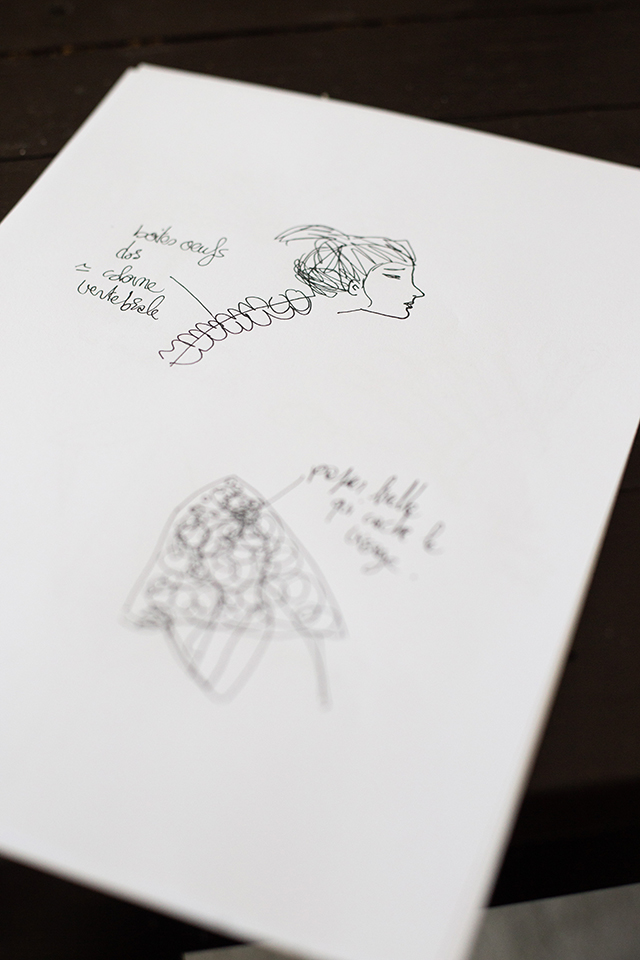 boites oeufs
dos
= colonne
vertebrale
papier bulle
qui cache le
visage.